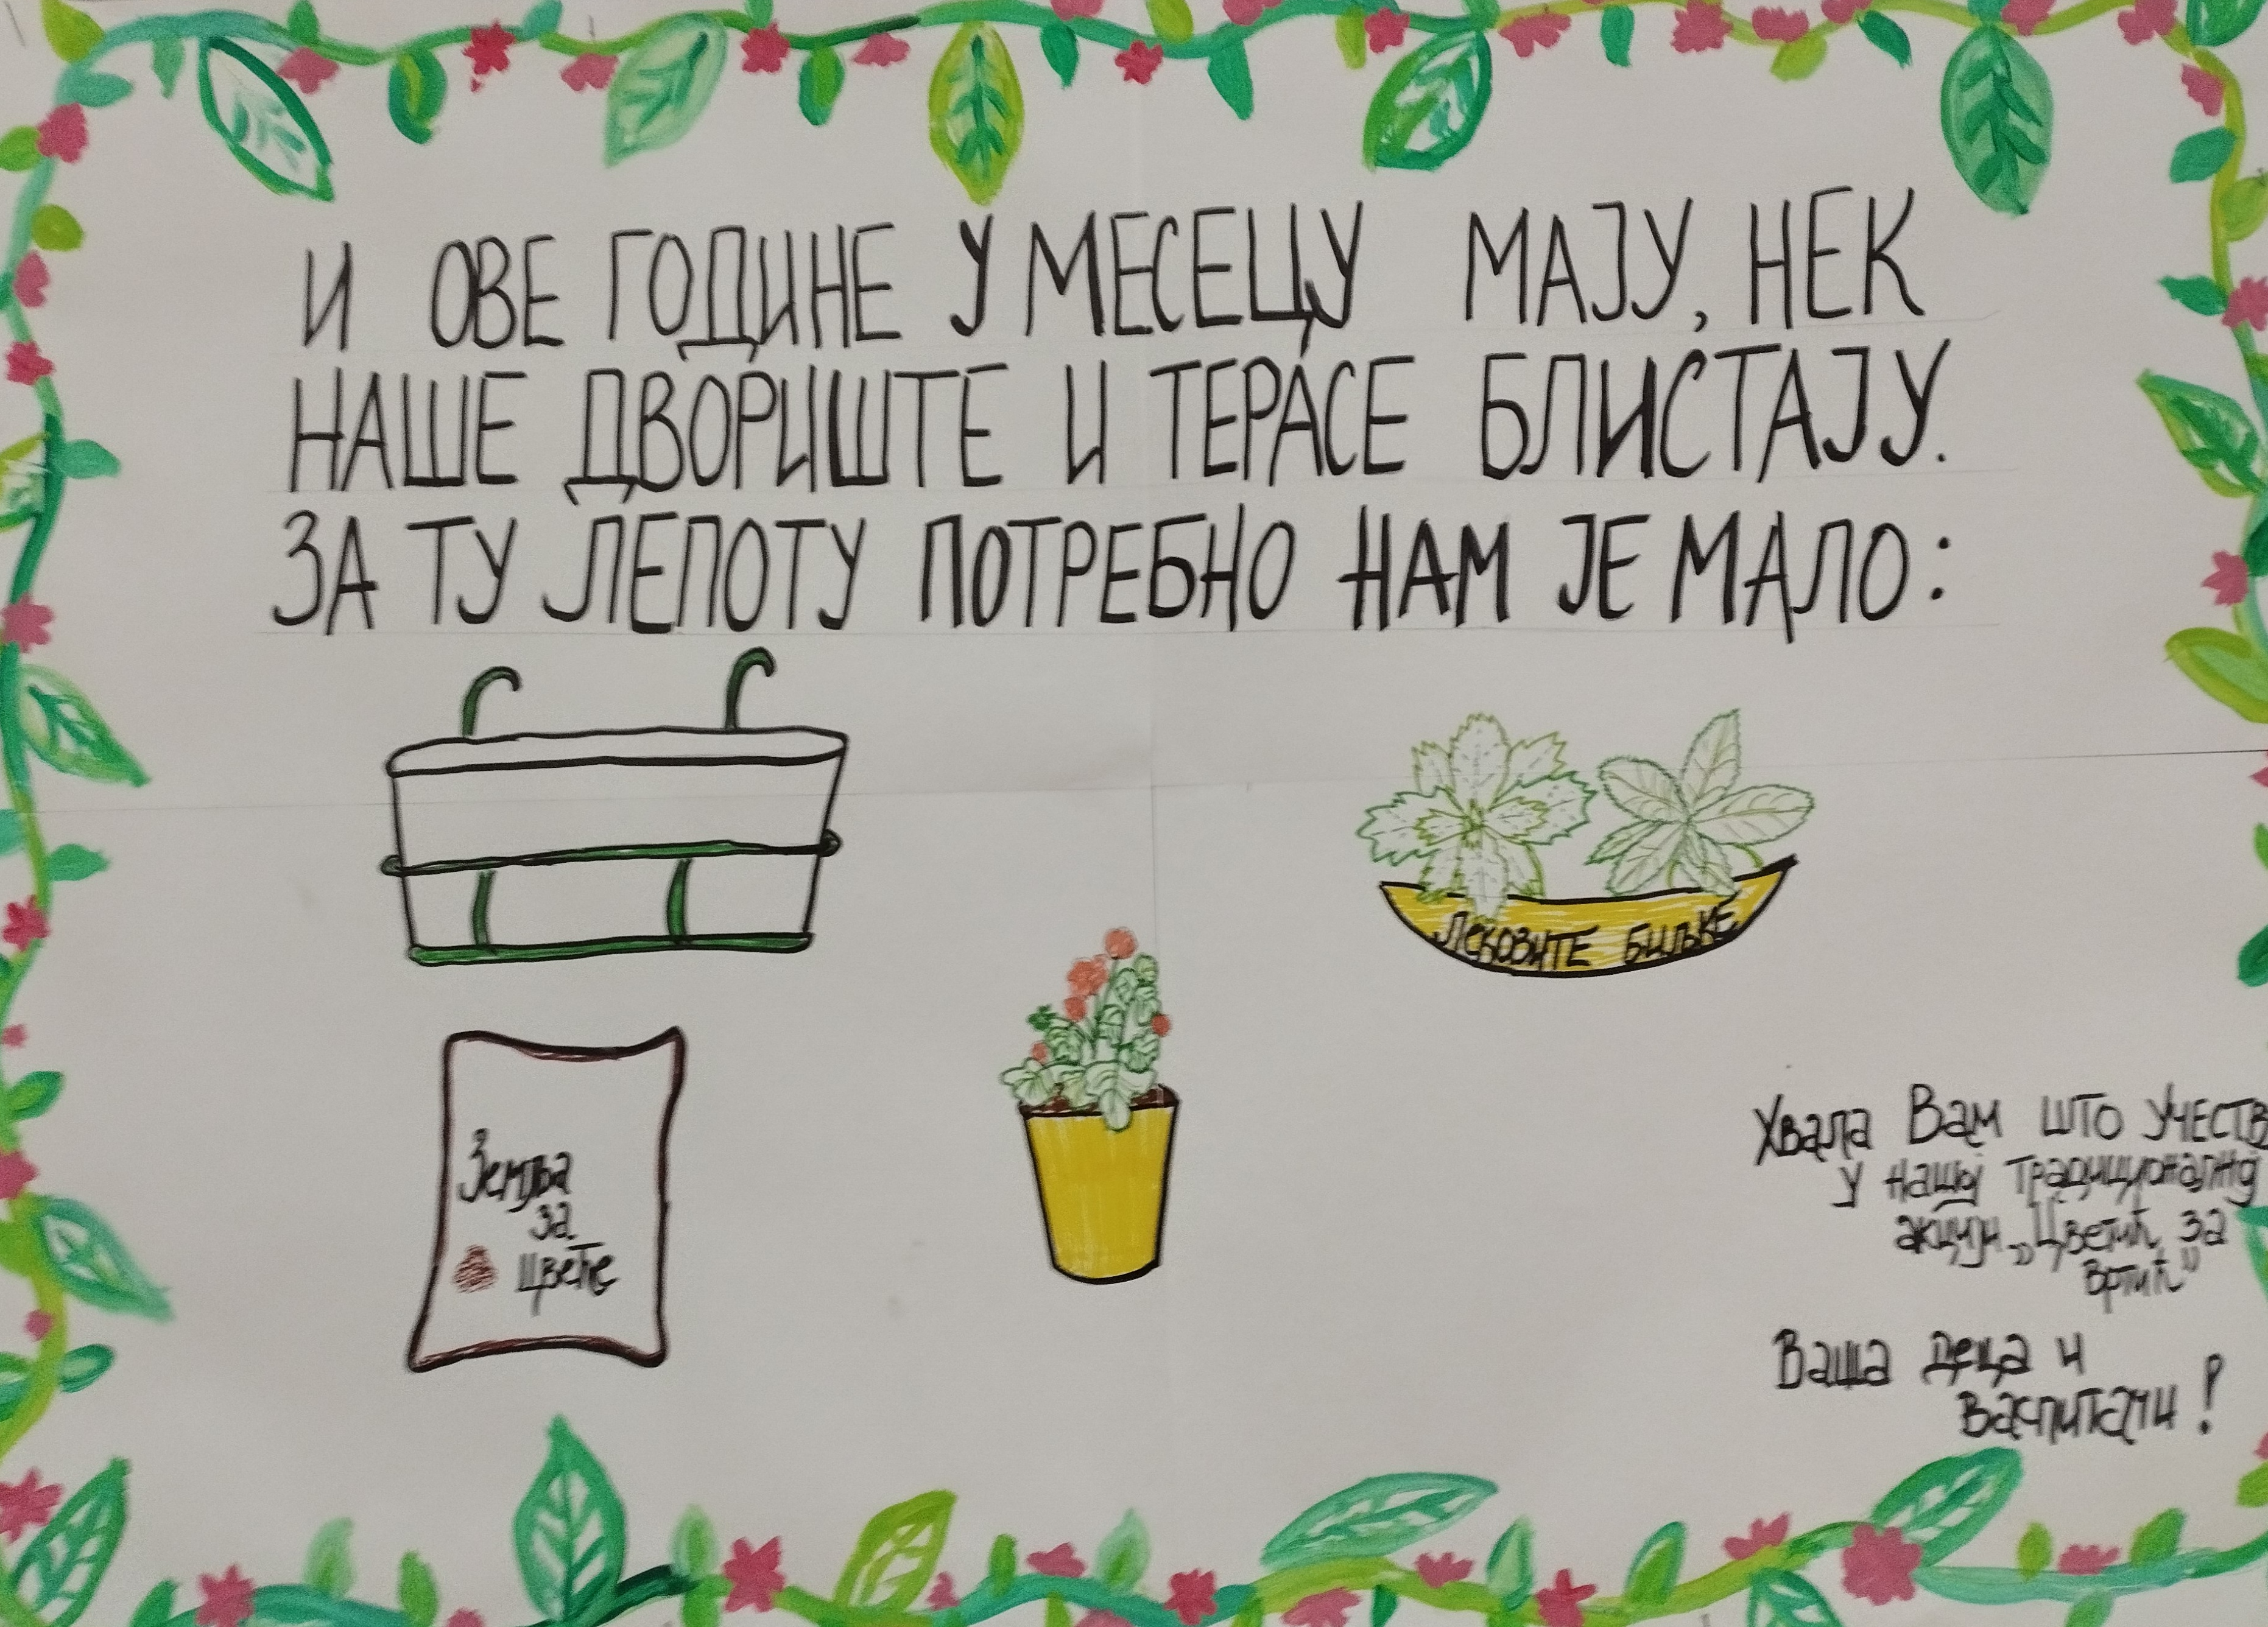 И ОВЕ ГОДИНЕ У МЕСЕЦУ МАЈУ, НЕК
НАШЕ ДВОРИШТЕ И ТЕРАСЕ БЛИСТАЈУ.
ЗА ТУ ЛЕПОТУ ПОТРЕБНО НАМ ЈЕ МАЛО:
ЛЕКОВИТЕ БИЉКЕ
Земља
за
цвеће
Хвала Вам што учеств
у нашој традиционалној
акцији „Цветић за
вртић”
Ваша деца и
васпитачи!